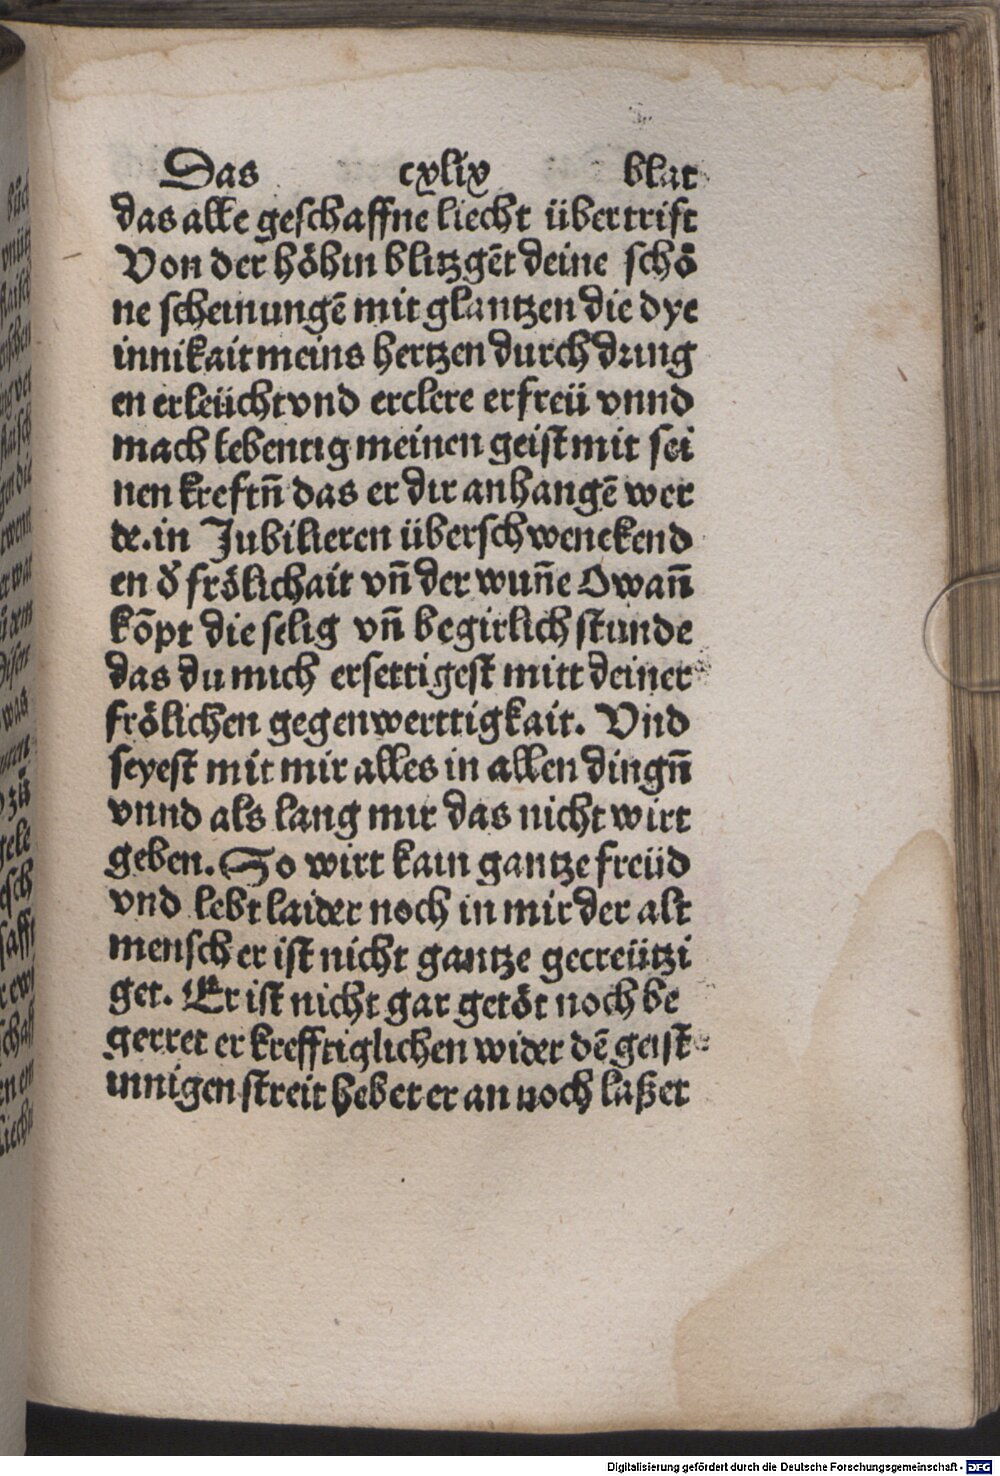 Das cxlix blat
das alle geschaffne liecht übertrift
Von der höhin blitzgēt deine schö
ne scheinungē mit glantzen die dye
innikait meins hertzen durch dring
en erleücht vnd erclere erfreü vnnd
mach lebentig meinen geist mit sei
nen kreftñ das er dir anhangē wer
de. in Jubilieren überschwenckend
en d̄ frölichait vñ der wuñe O wañ
kōpt die selig vñ begirlich stunde
das du mich ersettigest mitt deiner
frölichen gegenwerttigkait. Vnd
seyest mit mir alles in allen dingñ
vnnd als lang mir das nicht wirt
geben. So wirt kain gantze freüd
vnd lebt laider noch in mir der alt
mensch er ist nicht gantze gecreützi
get. Er ist nicht gar getöt noch be
gerret er krefftiglichen wider dē geist
innigen streit hebet er an noch laßet
Digitalisierung gefördert durch die Deutsche Forschungsgemeinschaft - DFG